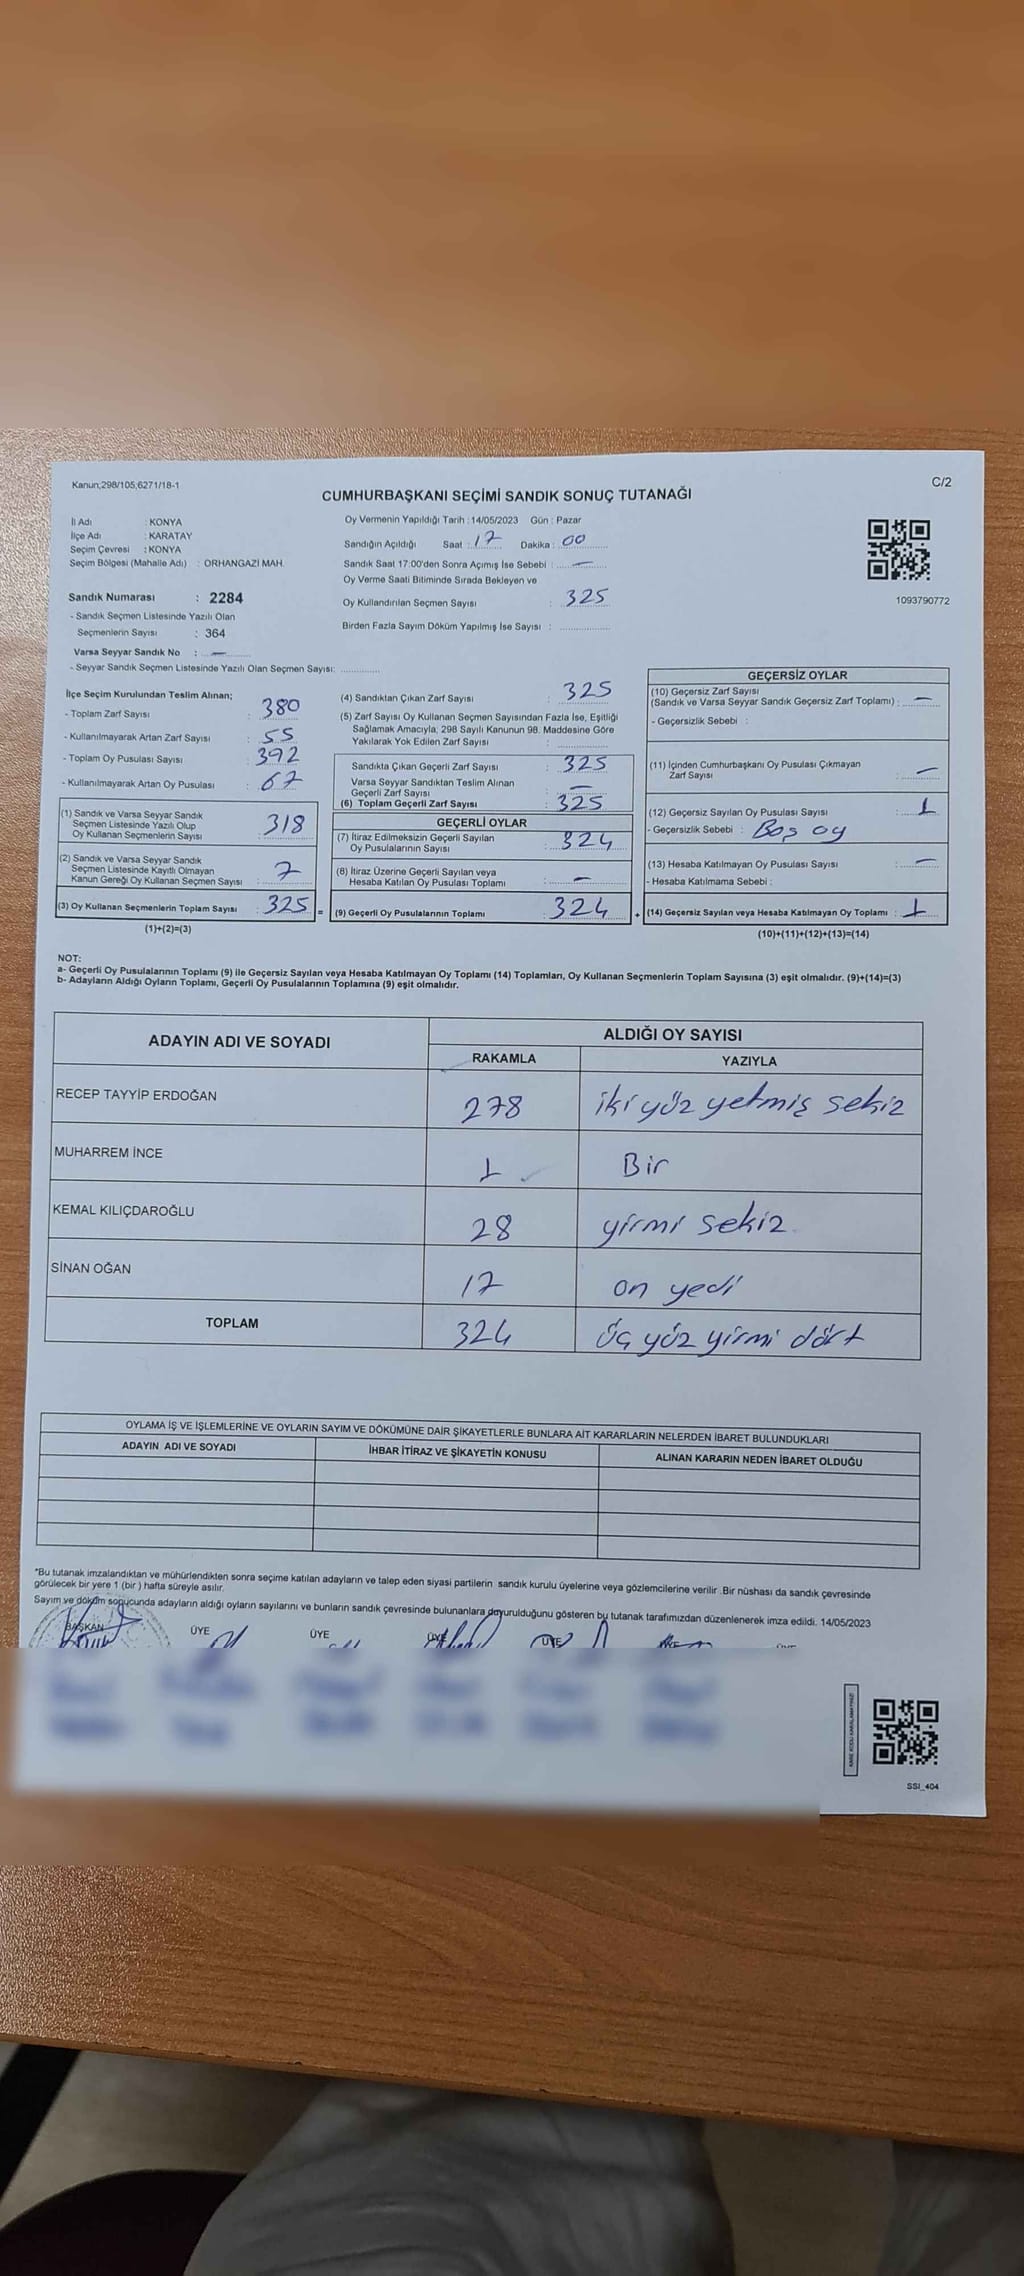 Kanun;298/105;6271/18-1
C/2
CUMHURBAŞKANI SEÇİMİ SANDIK SONUÇ TUTANAĞI
İl Adı : KONYA
İlçe Adı : KARATAY
Seçim Çevresi : KONYA
Seçim Bölgesi (Mahalle Adı) : ORHANGAZİ MAH.
Sandık Numarası : 2284
- Sandık Seçmen Listesinde Yazılı Olan
Seçmenlerin Sayısı : 364
Varsa Seyyar Sandık No : —
- Seyyar Sandık Seçmen Listesinde Yazılı Olan Seçmen Sayısı: ............
Oy Vermenin Yapıldığı Tarih : 14/05/2023 Gün : Pazar
Sandığın Açıldığı Saat : 17 Dakika : 00
Sandık Saat 17:00'den Sonra Açımış İse Sebebi : —
Oy Verme Saati Bitiminde Sırada Bekleyen ve
Oy Kullandırılan Seçmen Sayısı : 325
Birden Fazla Sayım Döküm Yapılmış İse Sayısı : ............
1093790772
İlçe Seçim Kurulundan Teslim Alınan;
- Toplam Zarf Sayısı : 380
- Kullanılmayarak Artan Zarf Sayısı : 55
- Toplam Oy Pusulası Sayısı : 392
- Kullanılmayarak Artan Oy Pusulası : 67
(1) Sandık ve Varsa Seyyar Sandık
Seçmen Listesinde Yazılı Olup
Oy Kullanan Seçmenlerin Sayısı : 318
(2) Sandık ve Varsa Seyyar Sandık
Seçmen Listesinde Kayıtlı Olmayan
Kanun Gereği Oy Kullanan Seçmen Sayısı : 7
(3) Oy Kullanan Seçmenlerin Toplam Sayısı : 325 =
(1)+(2)=(3)
(4) Sandıktan Çıkan Zarf Sayısı : 325
(5) Zarf Sayısı Oy Kullanan Seçmen Sayısından Fazla İse, Eşitliği
Sağlamak Amacıyla, 298 Sayılı Kanunun 98. Maddesine Göre
Yakılarak Yok Edilen Zarf Sayısı : ............
Sandıkta Çıkan Geçerli Zarf Sayısı : 325
Varsa Seyyar Sandıktan Teslim Alınan
Geçerli Zarf Sayısı : —
(6) Toplam Geçerli Zarf Sayısı : 325
GEÇERLİ OYLAR
(7) İtiraz Edilmeksizin Geçerli Sayılan
Oy Pusulalarının Sayısı : 324
(8) İtiraz Üzerine Geçerli Sayılan veya
Hesaba Katılan Oy Pusulası Toplamı : —
(9) Geçerli Oy Pusulalarının Toplamı : 324 +
GEÇERSİZ OYLAR
(10) Geçersiz Zarf Sayısı
(Sandık ve Varsa Seyyar Sandık Geçersiz Zarf Toplamı) : —
- Geçersizlik Sebebi :
(11) İçinden Cumhurbaşkanı Oy Pusulası Çıkmayan
Zarf Sayısı : —
(12) Geçersiz Sayılan Oy Pusulası Sayısı : 1
- Geçersizlik Sebebi : Boş oy
(13) Hesaba Katılmayan Oy Pusulası Sayısı : —
- Hesaba Katılmama Sebebi :
(14) Geçersiz Sayılan veya Hesaba Katılmayan Oy Toplamı : 1
(10)+(11)+(12)+(13)=(14)
NOT:
a- Geçerli Oy Pusulalarının Toplamı (9) ile Geçersiz Sayılan veya Hesaba Katılmayan Oy Toplamı (14) Toplamları, Oy Kullanan Seçmenlerin Toplam Sayısına (3) eşit olmalıdır. (9)+(14)=(3)
b- Adayların Aldığı Oyların Toplamı, Geçerli Oy Pusulalarının Toplamına (9) eşit olmalıdır.
ADAYIN ADI VE SOYADI ALDIĞI OY SAYISI
RAKAMLA YAZIYLA
RECEP TAYYİP ERDOĞAN 278 iki yüz yetmiş sekiz
MUHARREM İNCE 1 Bir
KEMAL KILIÇDAROĞLU 28 yirmi sekiz
SİNAN OĞAN 17 on yedi
TOPLAM 324 üç yüz yirmi dört
OYLAMA İŞ VE İŞLEMLERİNE VE OYLARIN SAYIM VE DÖKÜMÜNE DAİR ŞİKAYETLERLE BUNLARA AİT KARARLARIN NELERDEN İBARET BULUNDUKLARI
ADAYIN ADI VE SOYADI İHBAR İTİRAZ VE ŞİKAYETİN KONUSU ALINAN KARARIN NEDEN İBARET OLDUĞU
*Bu tutanak imzalandıktan ve mühürlendikten sonra seçime katılan adayların ve talep eden siyasi partilerin sandık kurulu üyelerine veya gözlemcilerine verilir. Bir nüshası da sandık çevresinde
görülecek bir yere 1 (bir ) hafta süreyle asılır.
Sayım ve döküm sonucunda adayların aldığı oyların sayılarını ve bunların sandık çevresinde bulunanlara duyurulduğunu gösteren bu tutanak tarafımızdan düzenlenerek imza edildi. 14/05/2023
BAŞKAN ÜYE ÜYE ÜYE ÜYE ÜYE
SSI_404